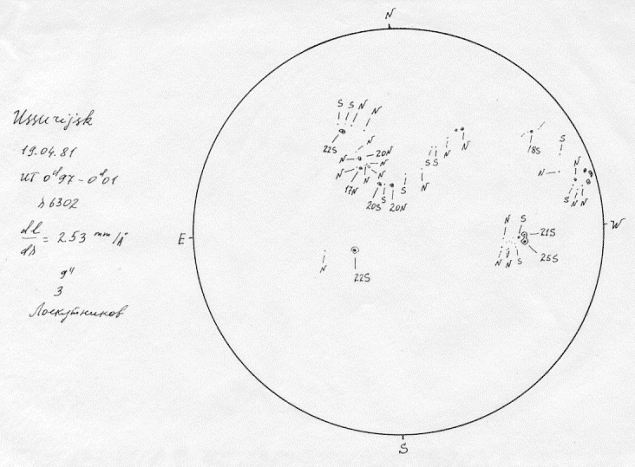 Ussurijsk
19.04.81
UT 0ᵈ97 - 0ᵈ01
λ6302
dl/dλ = 2.53 mm/Å
3
Лоскутников
N
S S N N
22S
N 20N
N N
17N N N
20S S 20N
S
N
S S
N N
18S
S
N
N
S N N
E
W
N S
21S
25S
N N S
N
22S
S